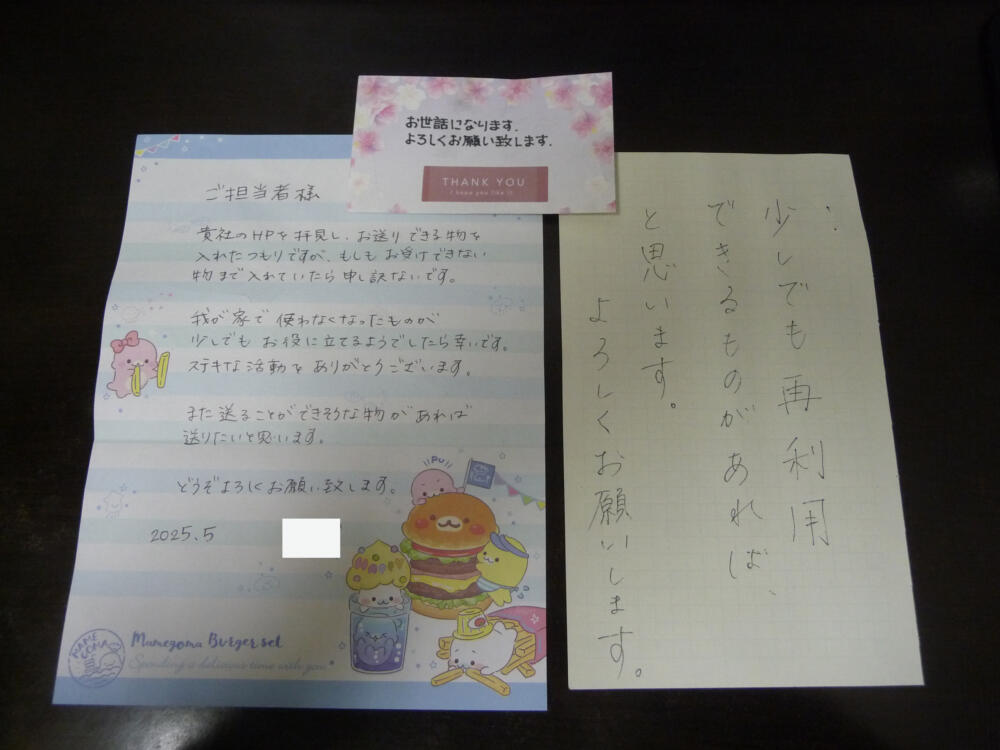 お世話になります.
よろしくお願い致します.
THANK YOU
I hope you like it
ご担当者様
貴社のHPを拝見し、お送りできる物を
入れたつもりですが、もしもお受けできない
物まで入れていたら申し訳ないです。
我が家で使わなくなったものが
少しでもお役に立てるようでしたら幸いです。
ステキな活動をありがとうございます。
また送ることができそうな物があれば
送りたいと思います。
どうぞよろしくお願い致します。
2025.5
PU
HAPPY
MAME GOMA
Mamegoma Burger set
Spending a delicious time with you
少しでも再利用
できるものがあれば、
と思います。
よろしくお願いします。